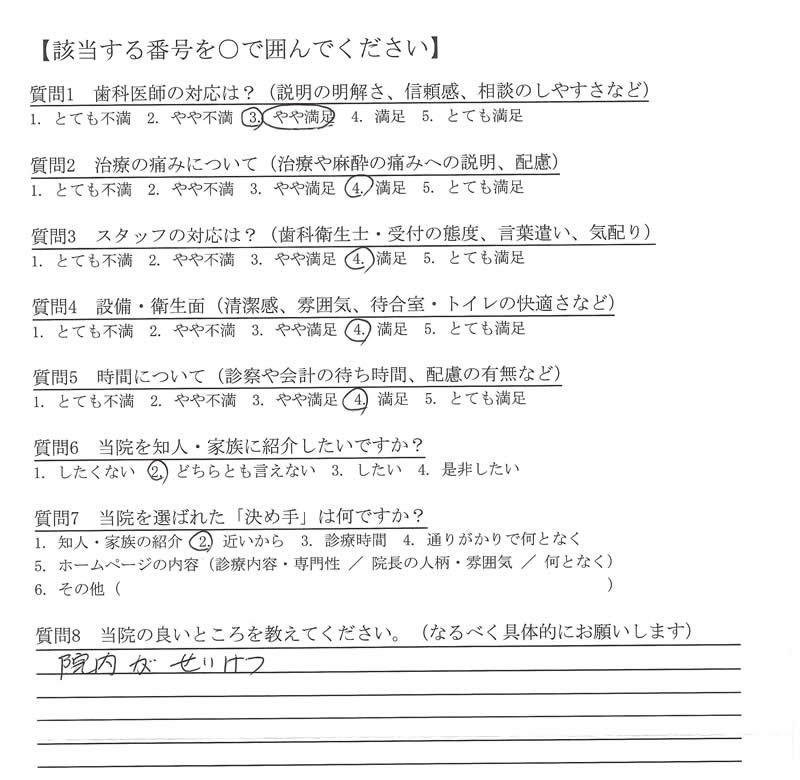 【該当する番号を〇で囲んでください】
質問1　歯科医師の対応は？（説明の明解さ、信頼感、相談のしやすさなど）
1. とても不満　2. やや不満　3. やや満足　4. 満足　5. とても満足
質問2　治療の痛みについて（治療や麻酔の痛みへの説明、配慮）
1. とても不満　2. やや不満　3. やや満足　4. 満足　5. とても満足
質問3　スタッフの対応は？（歯科衛生士・受付の態度、言葉遣い、気配り）
1. とても不満　2. やや不満　3. やや満足　4. 満足　5. とても満足
質問4　設備・衛生面（清潔感、雰囲気、待合室・トイレの快適さなど）
1. とても不満　2. やや不満　3. やや満足　4. 満足　5. とても満足
質問5　時間について（診察や会計の待ち時間、配慮の有無など）
1. とても不満　2. やや不満　3. やや満足　4. 満足　5. とても満足
質問6　当院を知人・家族に紹介したいですか？
1. したくない　2. どちらとも言えない　3. したい　4. 是非したい
質問7　当院を選ばれた「決め手」は何ですか？
1. 知人・家族の紹介　2. 近いから　3. 診療時間　4. 通りがかりで何となく
5. ホームページの内容（診療内容・専門性 ／ 院長の人柄・雰囲気 ／ 何となく）
6. その他（　　　　　　　　　　　　　　　　　　　　）
質問8　当院の良いところを教えてください。（なるべく具体的にお願いします）
院内がせいけつ